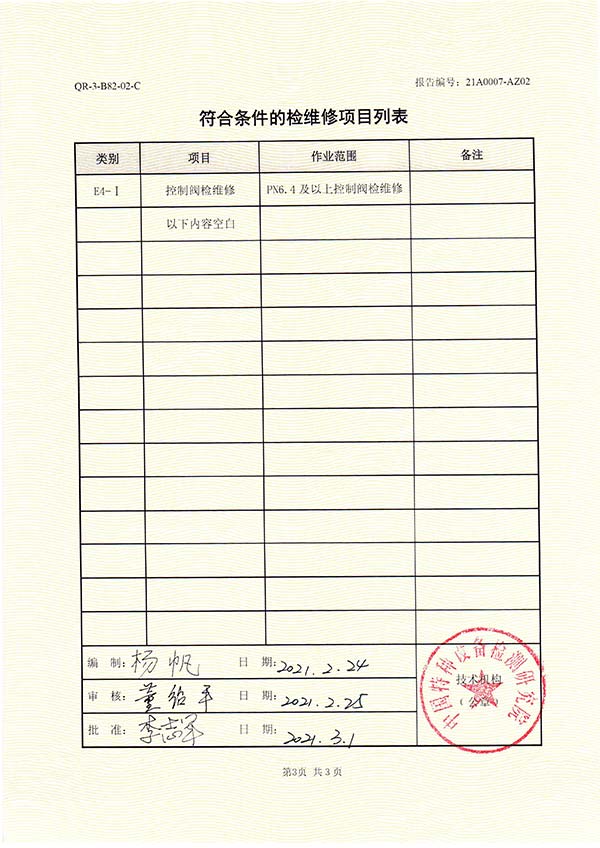 QR-3-B82-02-C
报告编号：21A0007-AZ02
符合条件的检维修项目列表
类别 项目 作业范围 备注
E4-Ⅰ 控制阀检维修 PN6.4及以上控制阀检维修
以下内容空白
编 制：杨帆 日 期：2021.2.24
审 核：董绍平 日 期：2021.2.25
批 准：李志军 日 期：2021.3.1
中国特种设备检测研究院
技术机构
（公章）
第3页 共3页